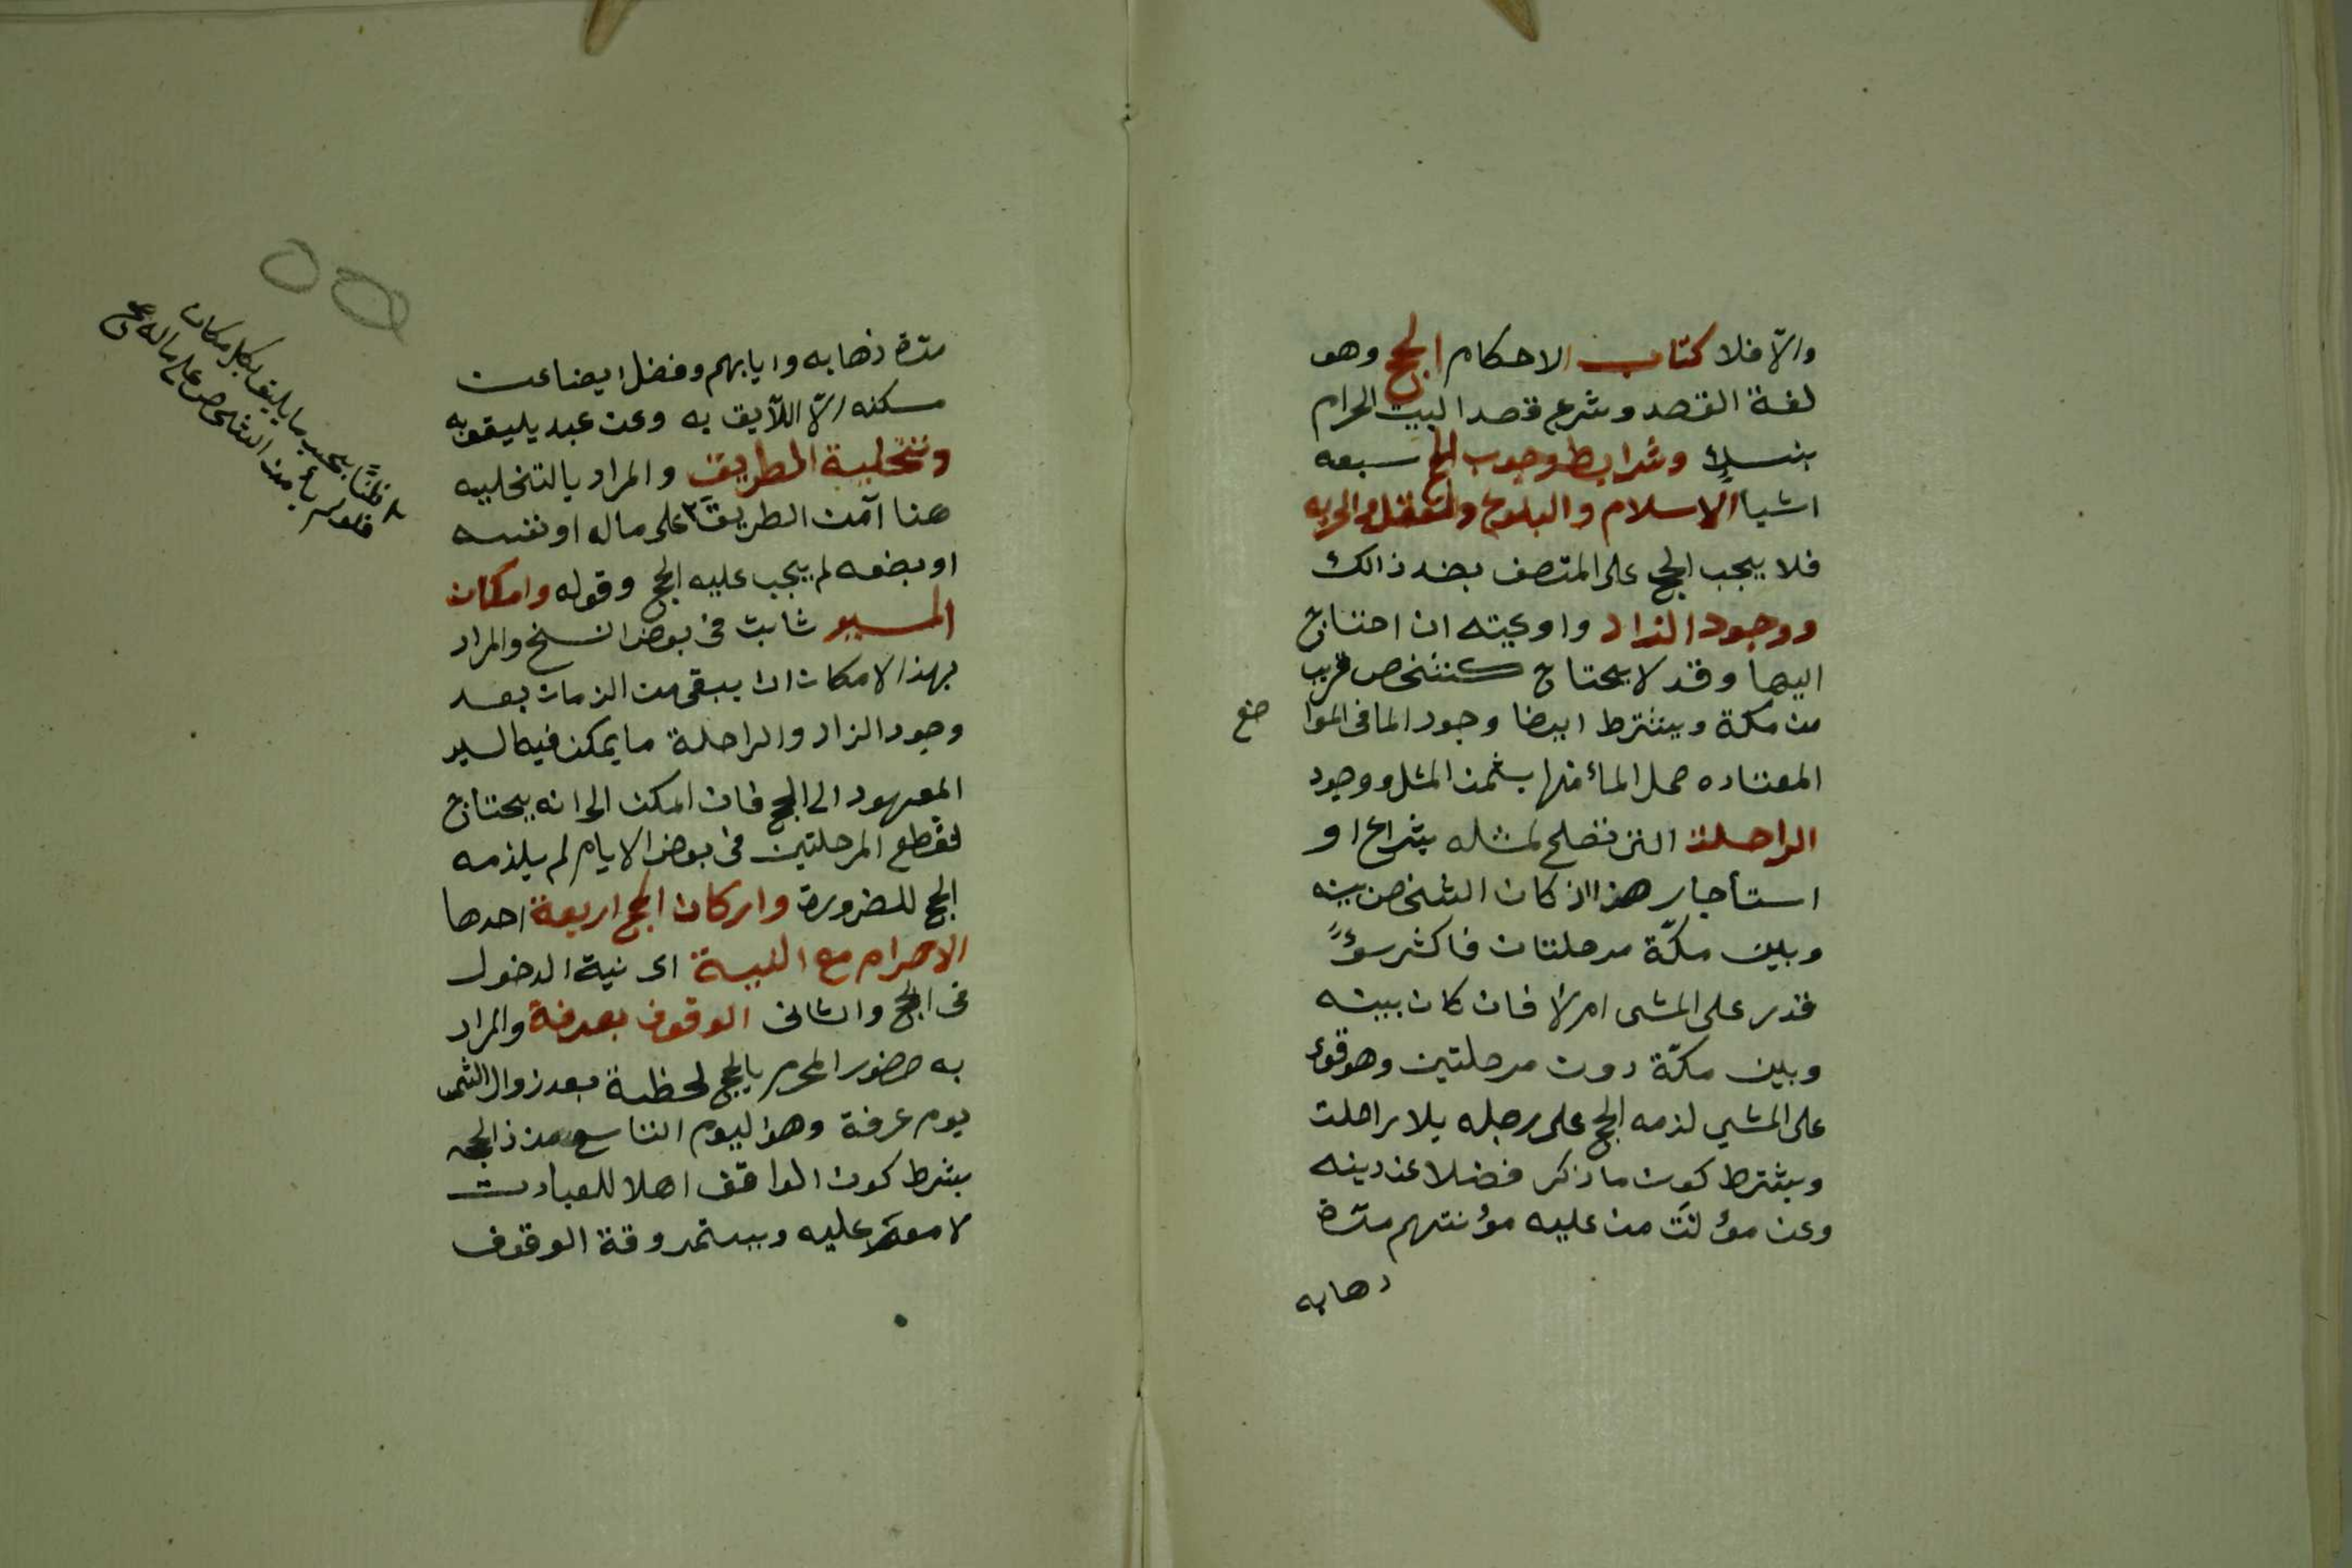 والّا فلا كتاب الاحكام الحج وهو
لغة القصد وشرع قصد البيت الحرام
بنسك وشرايط وجوب الحج سبعه
اشيا الاسلام والبلوغ والعقل والحريه
فلا يجب الحج على المتصف بضد ذالك
ووجود الزاد واوعيته ان احتاج
اليها وقد لا يحتاج كشخص قريب
من مكة ويشترط ايضا وجود الما فى الموا
ضع
المعتاده حمل الماء منها بثمن المثل ووجود
الراحلة التى تصلح لمثله بشراء او
استأجار هذا اذ كان الشخص بينه
وبين مكّة مرحلتان فاكثر سوءً
قدر على المشى ام لا فان كان بينه
وبين مكّة دون مرحلتين وهو قوى
على المشي لزمه الحج على رجله بلا راحلت
ويشترط كون ما ذكر فضلا عن دينه
وعن مؤنت من عليه مؤنتهم مدّة
ذهابه
مدّة ذهابه وايابهم وفضل ايضا عن
مسكنه الّا اللّآيق به وعن عبد يليق به
وتخلية الطريق والمراد بالتخليه
هنا آمن الطريق على ماله او نفسه
او بضعه لم يجب عليه الحج وقوله وامكان
المسير ثابت فى بعض النسخ والمراد
بهذ الامكان ان يبقى من الزمان بعد
وجود الزاد والراحلة ما يمكن فيه السير
المعهود الى الحج فان امكن الى انه يحتاج
لقطع المرحلتين فى بعض الايام لم يلزمه
الحج للضرورة واركان الحج اربعة احدها
الاحرام مع النية اى نية الدخول
فى الحج والثانى الوقوف بعرفة والمراد
به حضور المحرم بالحج لحظة بعد زوال الشمس
يوم عرفة وهو اليوم التاسع من ذ الحجه
بشرط كون الواقف اهلا للعبادت
لا مغمى عليه ويستمر وقة الوقوف
ظنًّا بحسب ما يليق بكل مكان
فلو لم يأمن الشخص على ماله